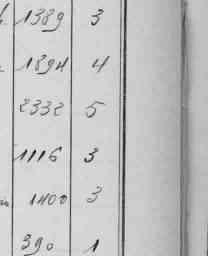 1389 3
1894 4
2332 5
1116 3
1400 3
390 1